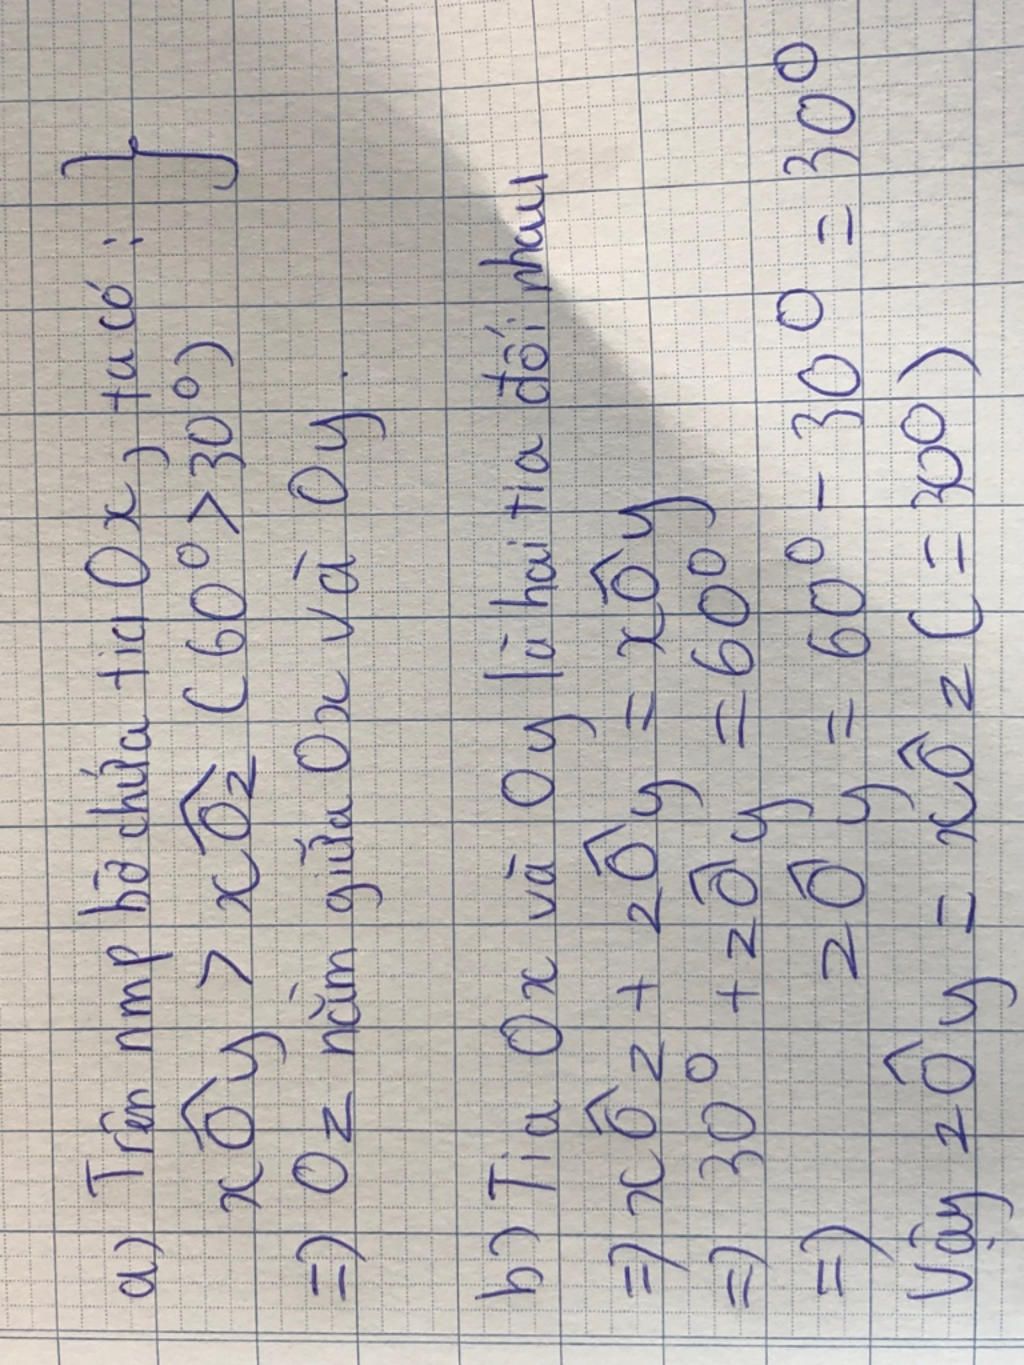 a) Trên nmp bờ chứa tia Ox, ta có: }
xÔy > xÔz (60° > 30°)
=) Oz nằm giữa Ox và Oy.
b) Tia Ox và Oy là hai tia đối nhau
=) xÔz + zÔy = xÔy
=) 30° + zÔy = 60°
=) zÔy = 60° - 30° = 30°
Vậy zÔy = xÔz (= 30°)